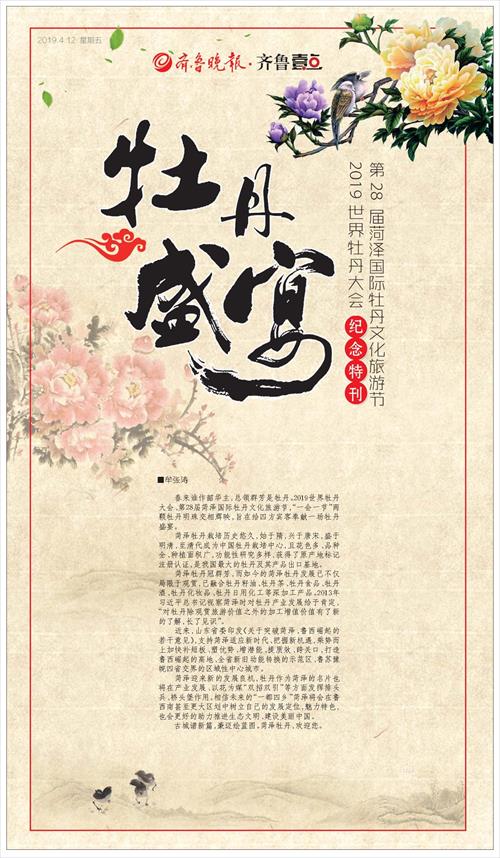 2019.4.12 星期五
齐鲁晚报·齐鲁壹点
牡丹
盛宴
第28届菏泽国际牡丹文化旅游节
2019世界牡丹大会
纪念特刊
■牟张涛
春来谁作韶华主,总领群芳是牡丹。2019世界牡丹
大会、第28届菏泽国际牡丹文化旅游节,“一会一节”两
颗牡丹明珠交相辉映,旨在给四方宾客奉献一场牡丹
盛宴。
菏泽牡丹栽培历史悠久,始于隋,兴于唐宋,盛于
明清,至清代成为中国牡丹栽培中心,且花色多、品种
全、种植面积广,功能性研究多样,获得了原产地标记
注册认证,是我国最大的牡丹及其产品出口基地。
菏泽牡丹冠群芳,而如今的菏泽牡丹发展已不仅
局限于观赏,已融合牡丹籽油、牡丹茶、牡丹食品、牡丹
酒、牡丹化妆品、牡丹日用化工等深加工产品。2013年
习近平总书记视察菏泽时对牡丹产业发展给于肯定,
“对牡丹除观赏旅游价值之外的加工增值价值有了新
的了解,长了见识”。
近来,山东省委印发《关于突破菏泽、鲁西崛起的
若干意见》,支持菏泽适应新时代、把握新机遇,乘势而
上加快补短板、塑优势、增潜能、提质效、跨关口,打造
鲁西崛起的高地、全省新旧动能转换的示范区、鲁苏豫
皖四省交界的区域性中心城市。
菏泽迎来新的发展良机,牡丹作为菏泽的名片也
将在产业发展、以花为媒“双招双引”等方面发挥排头
兵、桥头堡作用。相信未来的“一都四乡”菏泽将会在鲁
西南甚至更大区划中树立自己的发展定位、魅力特色,
也会更好的助力推进生态文明、建设美丽中国。
古城谱新篇,豪迈绘蓝图。菏泽牡丹,欢迎您。